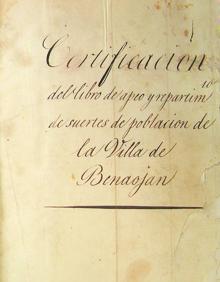 Certificacion
del libro de apeo y repartim.to
de suertes de poblacion de
la Villa de
Benaojan